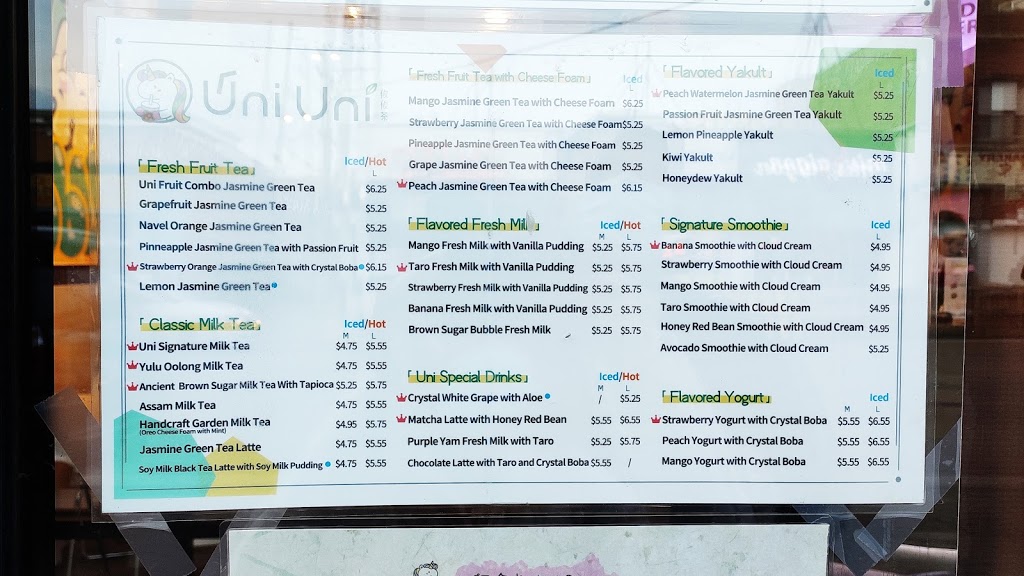 Uni Uni
「Fresh Fruit Tea」 Iced/Hot
L
Uni Fruit Combo Jasmine Green Tea $6.25
Grapefruit Jasmine Green Tea $5.25
Navel Orange Jasmine Green Tea $5.25
Pinneapple Jasmine Green Tea with Passion Fruit $5.25
Strawberry Orange Jasmine Green Tea with Crystal Boba $6.15
Lemon Jasmine Green Tea $5.25
「Classic Milk Tea」 Iced/Hot
M L
Uni Signature Milk Tea $4.75 $5.55
Yulu Oolong Milk Tea $4.75 $5.55
Ancient Brown Sugar Milk Tea With Tapioca $5.25 $5.75
Assam Milk Tea $4.75 $5.55
Handcraft Garden Milk Tea $4.95 $5.75
(Oreo Cheese Foam with Mint)
Jasmine Green Tea Latte $4.75 $5.55
Soy Milk Black Tea Latte with Soy Milk Pudding $4.75 $5.55
「Fresh Fruit Tea with Cheese Foam」 Iced
L
Mango Jasmine Green Tea with Cheese Foam $6.25
Strawberry Jasmine Green Tea with Cheese Foam $5.25
Pineapple Jasmine Green Tea with Cheese Foam $5.25
Grape Jasmine Green Tea with Cheese Foam $5.25
Peach Jasmine Green Tea with Cheese Foam $6.15
「Flavored Fresh Milk」 Iced/Hot
M L
Mango Fresh Milk with Vanilla Pudding $5.25 $5.75
Taro Fresh Milk with Vanilla Pudding $5.25 $5.75
Strawberry Fresh Milk with Vanilla Pudding $5.25 $5.75
Banana Fresh Milk with Vanilla Pudding $5.25 $5.75
Brown Sugar Bubble Fresh Milk $5.25 $5.75
「Uni Special Drinks」 Iced/Hot
M L
Crystal White Grape with Aloe / $5.25
Matcha Latte with Honey Red Bean $5.55 $6.55
Purple Yam Fresh Milk with Taro $5.25 $5.75
Chocolate Latte with Taro and Crystal Boba $5.55 /
「Flavored Yakult」 Iced
L
Peach Watermelon Jasmine Green Tea Yakult $5.25
Passion Fruit Jasmine Green Tea Yakult $5.25
Lemon Pineapple Yakult $5.25
Kiwi Yakult $5.25
Honeydew Yakult $5.25
「Signature Smoothie」 Iced
L
Banana Smoothie with Cloud Cream $4.95
Strawberry Smoothie with Cloud Cream $4.95
Mango Smoothie with Cloud Cream $4.95
Taro Smoothie with Cloud Cream $4.95
Honey Red Bean Smoothie with Cloud Cream $4.95
Avocado Smoothie with Cloud Cream $5.25
「Flavored Yogurt」 Iced
M L
Strawberry Yogurt with Crystal Boba $5.55 $6.55
Peach Yogurt with Crystal Boba $5.55 $6.55
Mango Yogurt with Crystal Boba $5.55 $6.55